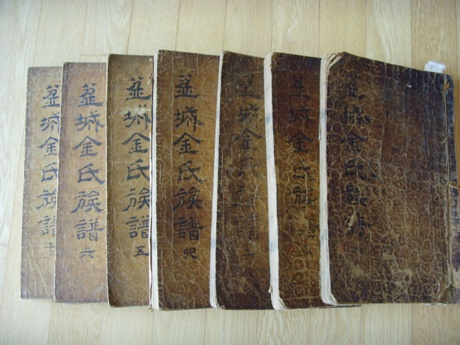 盆城金氏族譜
盆城金氏族譜六
盆城金氏族譜五
盆城金氏族譜四
盆城金氏族譜
盆城金氏族
盆城金氏族譜